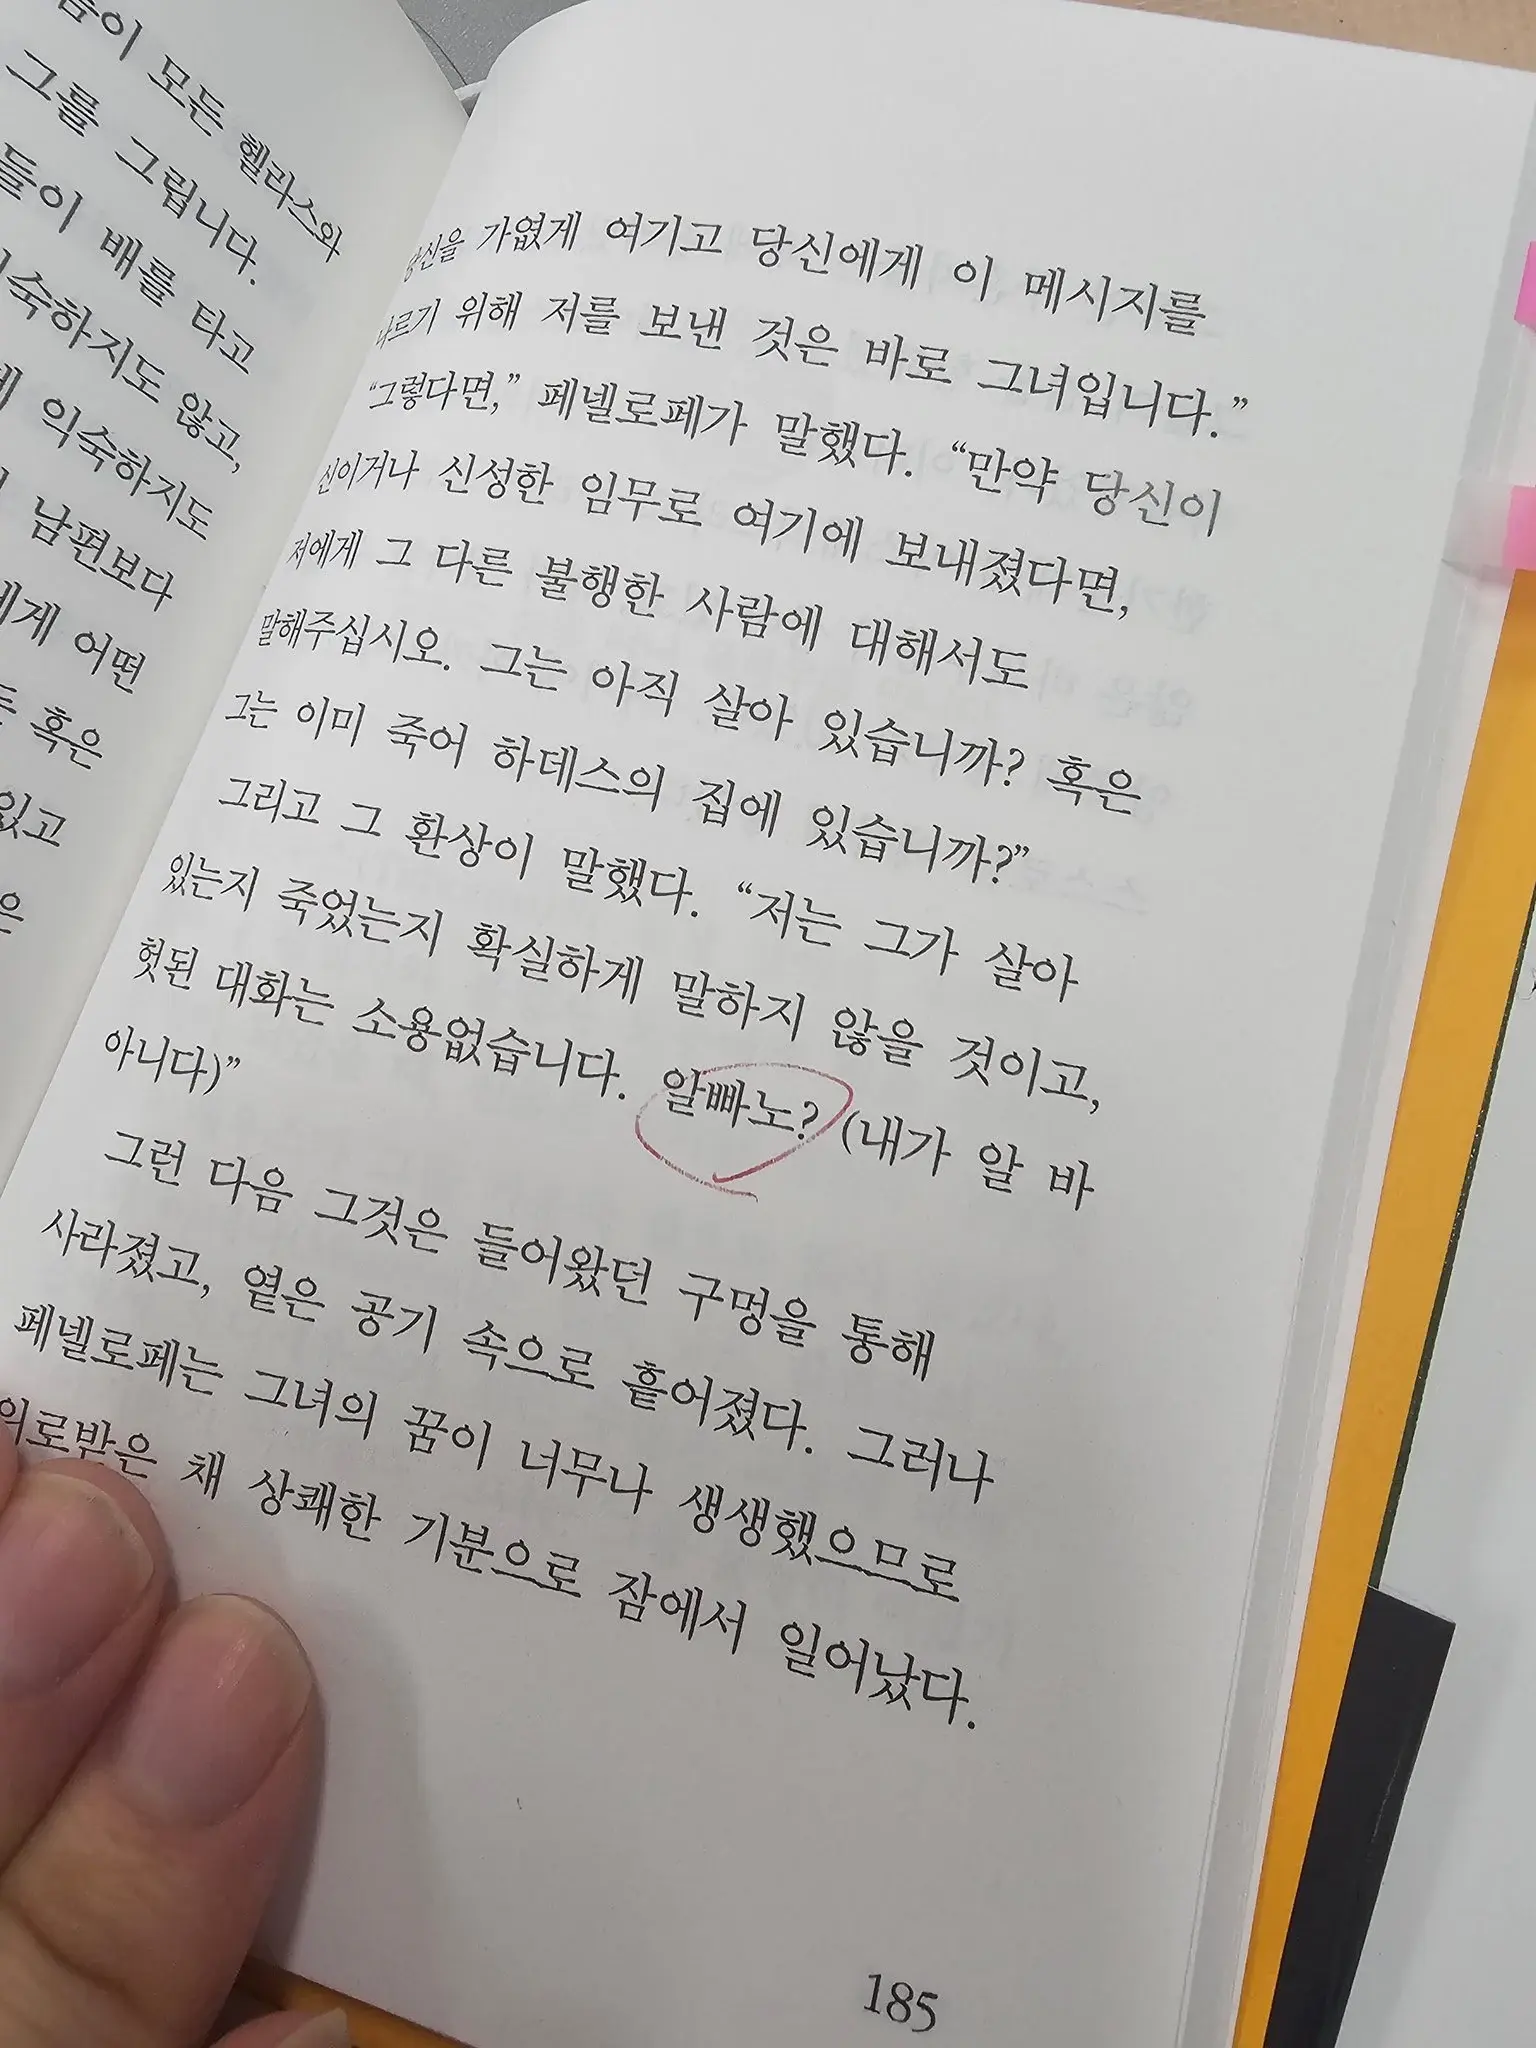 모든 헬라스와
그를 그립니다.
배를 타고
않고,
익숙하지도
남편보다
어떤
혹은
당신을 가엾게 여기고 당신에게 이 메시지를
나르기 위해 저를 보낸 것은 바로 그녀입니다.”
“그렇다면,” 페넬로페가 말했다. “만약 당신이
신이거나 신성한 임무로 여기에 보내졌다면,
저에게 그 다른 불행한 사람에 대해서도
말해주십시오. 그는 아직 살아 있습니까? 혹은
그는 이미 죽어 하데스의 집에 있습니까?”
그리고 그 환상이 말했다. “저는 그가 살아
있는지 죽었는지 확실하게 말하지 않을 것이고,
헛된 대화는 소용없습니다. 알빠노? (내가 알 바
아니다)”
그런 다음 그것은 들어왔던 구멍을 통해
사라졌고, 옅은 공기 속으로 흩어졌다. 그러나
페넬로페는 그녀의 꿈이 너무나 생생했으므로
위로받은 채 상쾌한 기분으로 잠에서 일어났다.
185